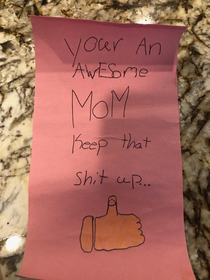 your An
AWESome
MoM
Keep that
shit up..